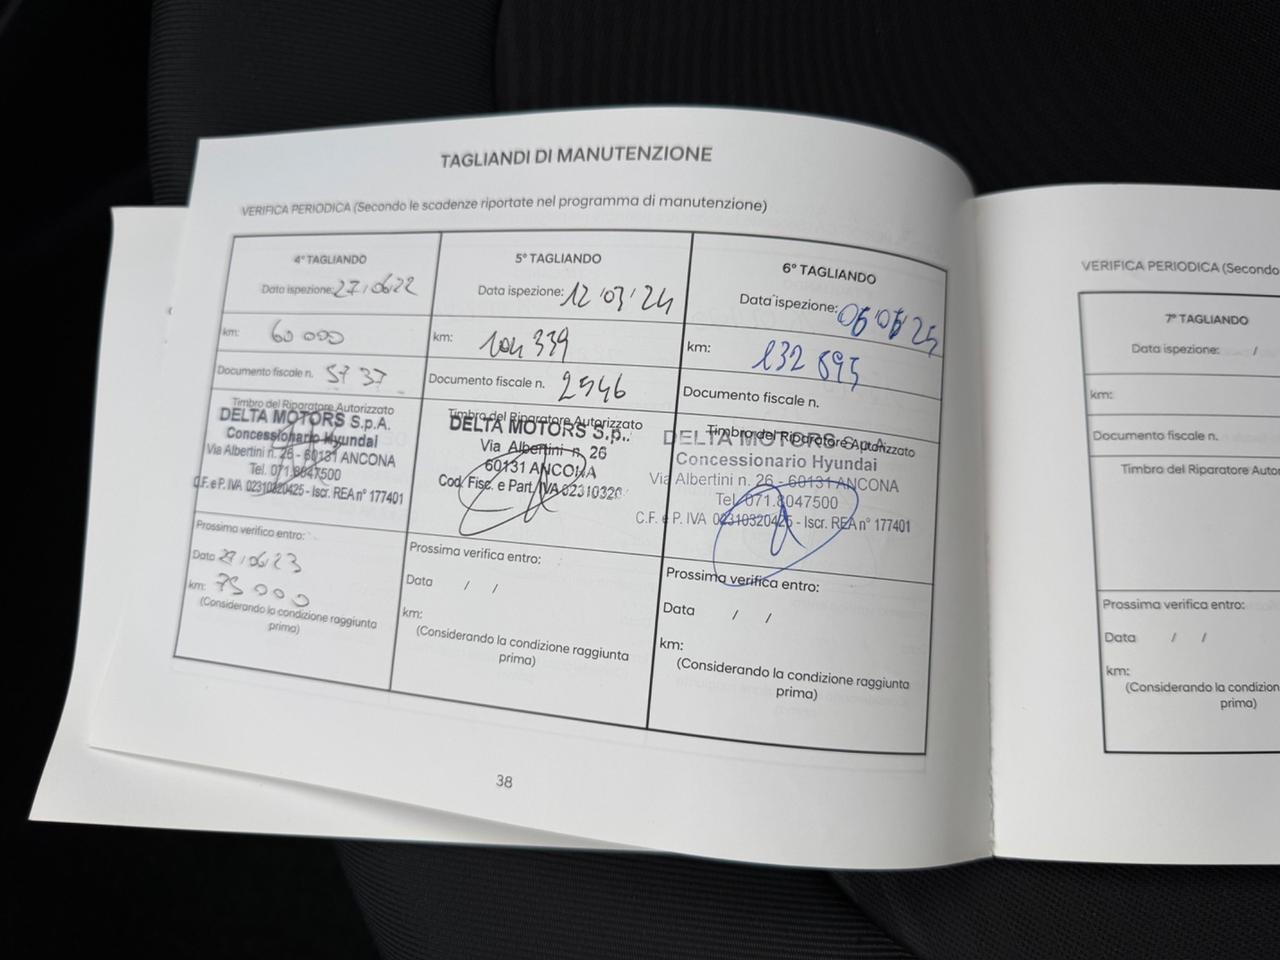 TAGLIANDI DI MANUTENZIONE
VERIFICA PERIODICA (Secondo le scadenze riportate nel programma di manutenzione)
4° TAGLIANDO
Data ispezione: 27/06/22
km: 60 000
Documento fiscale n. 5737
Timbro del Riparatore Autorizzato
DELTA MOTORS S.p.A.
Concessionario Hyundai
Via Albertini n. 26 - 60131 ANCONA
Tel. 071.8047500
C.F. e P. IVA 02310320425 - Iscr. REA n° 177401
Prossima verifica entro:
Data 27/06/23
km: 75 000
(Considerando la condizione raggiunta
prima)
5° TAGLIANDO
Data ispezione: 12/03/24
km: 104 339
Documento fiscale n. 2546
Timbro del Riparatore Autorizzato
DELTA MOTORS S.p.
Via Albertini n. 26
60131 ANCONA
Cod. Fisc. e Part. IVA 02310320
Prossima verifica entro:
Data / /
km:
(Considerando la condizione raggiunta
prima)
6° TAGLIANDO
Data ispezione: 25
km: 132 895
Documento fiscale n.
Timbro del Riparatore Autorizzato
DELTA MOTORS S.p.A.
Concessionario Hyundai
Via Albertini n. 26 - 60131 ANCONA
Tel. 071.8047500
C.F. e P. IVA 02310320425 - Iscr. REA n° 177401
Prossima verifica entro:
Data / /
km:
(Considerando la condizione raggiunta
prima)
38
VERIFICA PERIODICA (Secondo
7° TAGLIANDO
Data ispezione: /
km:
Documento fiscale n.
Timbro del Riparatore Autor
Prossima verifica entro:
Data / /
km:
(Considerando la condizion
prima)